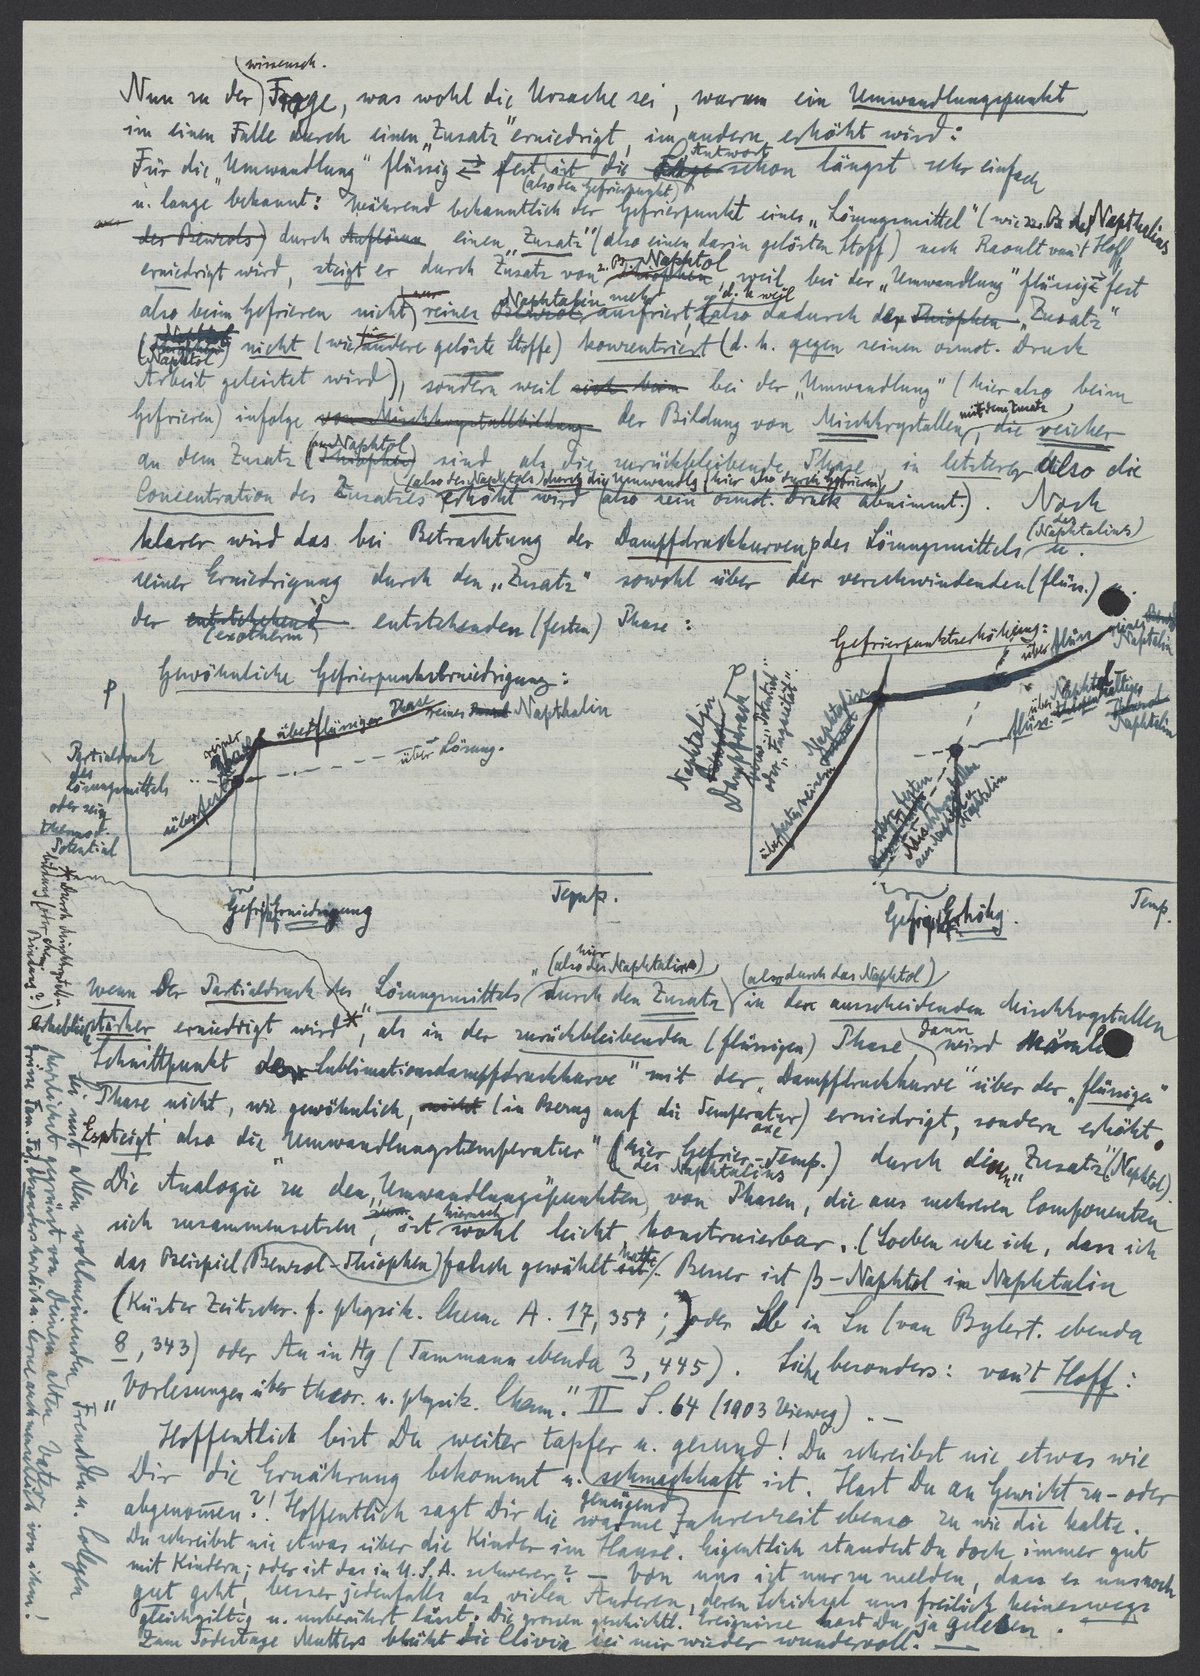 wissensch.
Nun zu der Frage, was wohl die Ursache sei, warum ein Umwandlungspunkt
im einen Falle durch einen „Zusatz" erniedrigt, im andern erhöht wird:
Für die „Umwandlung" flüssig ⇄ fest ist die Antwort schon längst sehr einfach
(also den Gefrierpunkt)
u. lange bekannt: Während bekanntlich der Gefrierpunkt eines „Lösungsmittel" (wie z. B. des Napthalins
des Benzols) durch Auflösen einen „Zusatz" (also einen darin gelösten Stoff) nach Raoult van't Hoff
erniedrigt wird, steigt er durch Zusatz von z. B. Naphtol, weil bei der „Umwandlung" flüssig ⇄ fest
also beim Gefrieren nicht nur reines Naphtalin mehr ausfriert, d. h. weil also dadurch der „Zusatz"
(Naphtol) nicht (wie andere gelöste Stoffe) konzentriert (d. h. gegen seinen osmot. Druck
Arbeit geleistet wird), sondern weil sich beim bei der „Umwandlung" (hier also beim
Gefrieren) infolge von Mischkrystallbildung der Bildung von Mischkrystallen mit dem Zusatz, die reicher
an dem Zusatz (Naphtol) sind als die zurückbleibende Phase, in letzterer also die
(also des Naphtols) durch die Umwandlg (hier also durch Gefrieren)
Concentration des Zusatzes erhöht wird (also sein osmot. Druck abnimmt.). Noch
klarer wird das bei Betrachtung der Dampfdruckkurven des Lösungsmittels (des Naphtalins) u.
seiner Erniedrigung durch den „Zusatz" sowohl über der verschwindenden (flüss.)
der entstehend entstehenden (festen) Phase:
(exotherm)
Gewöhnliche Gefrierpunktserniedrigung:
P
Partialdruck
des
Lösungsmittels
oder sein
thermod.
Potential
über fester
reiner Phase
über flüssiger Phase reines Napthalin
über Lösung.
Temp.
Gefrpkt Erniedrigung
Gefrierpunktserhöhung:
P
Naphtalin
Dampfdruck
sowas „Potential"
oder „Fugazität".
über fester reinen Naphtalin
über flüss reines Naphtalin
über Naphtolhaltiges
flüss. Naphtalin
über festen
Mischkrystallen
aus Naphtol u.
Naphtalin
Gefrpkt Erhöhg.
Temp.
hier
(also des Naphtalins) (also durch das Naphtol)
wenn der Partialdruck des „Lösungsmittels" durch den Zusatz in den ausscheidenden Mischkrystallen
erheblich stärker erniedrigt wird*, als in der zurückbleibenden (flüssigen) Phase, dann wird
Schnittpunkt der „Sublimationsdampfdruckkurve" mit der „Dampfdruckkurve" über der „flüssigen"
Phase nicht, wie gewöhnlich, nicht (in Bezug auf die Temperaturaxe) erniedrigt, sondern erhöht.
Es steigt also die „Umwandlungstemperatur" (hier Gefrier-Temp. des Naphtalins) durch den „Zusatz" (Naphtol).
Die Analogie zu den „Umwandlungspunkten" von Phasen, die aus mehreren Componenten
sich zusammensetzen, ist hiernach wohl leicht konstruierbar. (Soeben sehe ich, dass ich
das Beispiel (Benzol-Thiophen) falsch gewählt hatte. Besser ist β-Naphtol in Naphtalin
(Küster Zeitschr. f. physik. Chem. A. 17, 357;) oder Sb in Sn (van Bylert. ebenda
8, 343) oder Au in Hg (Tammann ebenda 3, 445). Siehe besonders: van't Hoff:
„Vorlesungen über theor. u. physik. Chem." II S. 64 (1903 Vieweg). —
Hoffentlich bist Du weiter tapfer u. gesund! Du schreibst nie etwas wie
Dir die Ernährung bekommt u. schmackhaft ist. Hast Du an Gewicht zu- oder
abgenommen?! Hoffentlich sagt Dir die genügend warme Jahreszeit ebenso zu wie die kalte.
Du schreibst nie etwas über die Kinder im Hause. Eigentlich standest Du doch immer gut
mit Kindern; oder ist das in U.S.A. schwerer? — Von uns ist nur zu melden, dass es uns noch
gut geht, besser jedenfalls als vielen Anderen, deren Schicksal uns freilich keineswegs
gleichgiltig u. unberührt lässt. Die grossen geschichtl. Ereignisse hast Du ja gelesen.
Zum Todestage Mutters blüht die Clivia bei mir wieder wundervoll. —
* Durch Mischkrystallbildung (oder chem. Bindung?)
Sei mit allen wohlmeinenden Freunden u. Collegen
herzlichst gegrüsst von Deinem alten Vater.